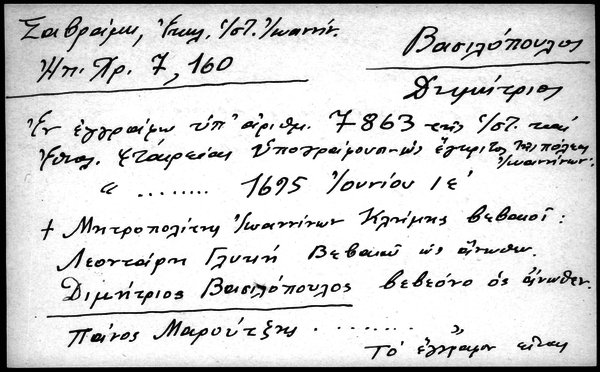 Σαβράμη, Ἐκκλ. Ἱστ. Ἰωαννίν.
Ἠπ. Χρ. 7, 160
Βασιλόπουλος
Δημήτριος
Ἐν ἐγγράφῳ ὑπ' ἀριθμ. 7863 τῆς Ἱστ. καὶ
Ἐθνολ. Ἑταιρείας ὑπογράφουσιν ὡς ἔγκριτοι τῆς πόλεως
Ἰωαννίνων:
" ........ 1695 Ἰουνίου ιε΄
† Μητροπολίτης Ἰωαννίνων Κλήμης βεβαιοῖ:
Λεοντάρης Γλυκὴ βεβαιῶ ὡς ἄνωθεν.
Διμήτριος Βασιλόπουλος βεβεόνο ὁς ἄνωθεν.
Πάνος Μαρούτζης .........
Τὸ ἔγγραφον εἶναι